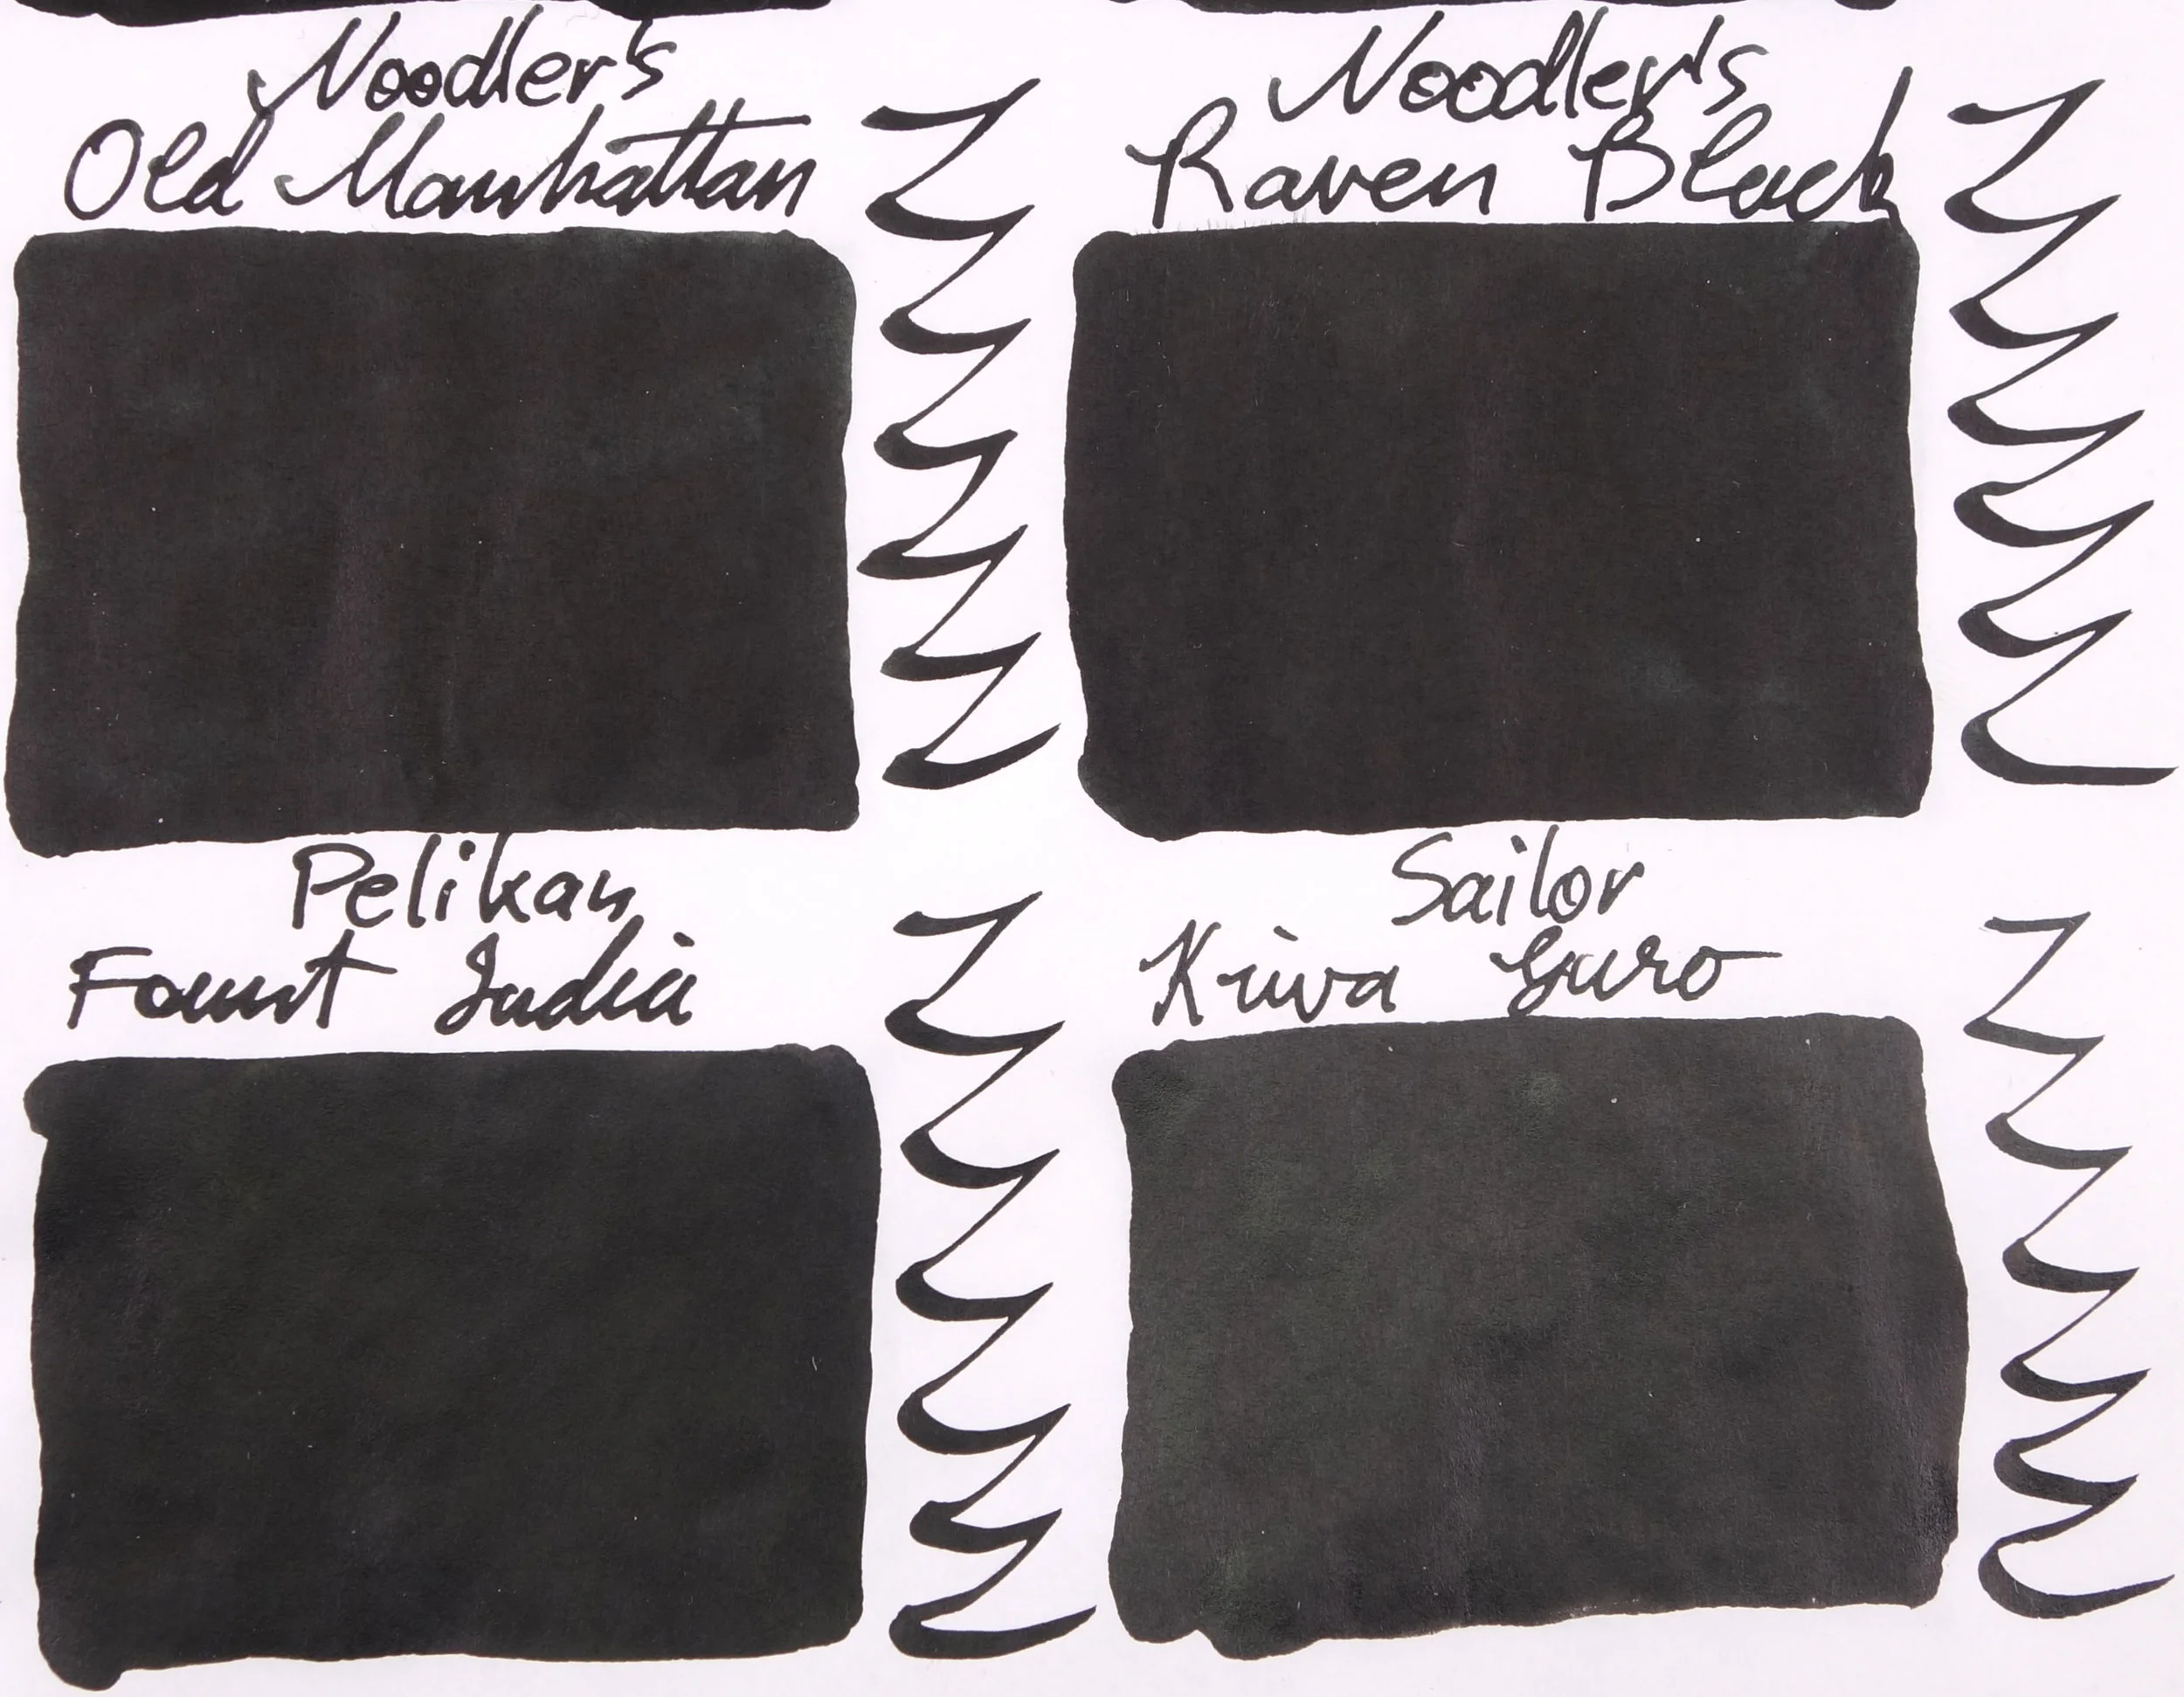 Noodler's
Old Manhattan
Noodler's
Raven Black
Pelikan
Fount India
Sailor
Kiwa Guro